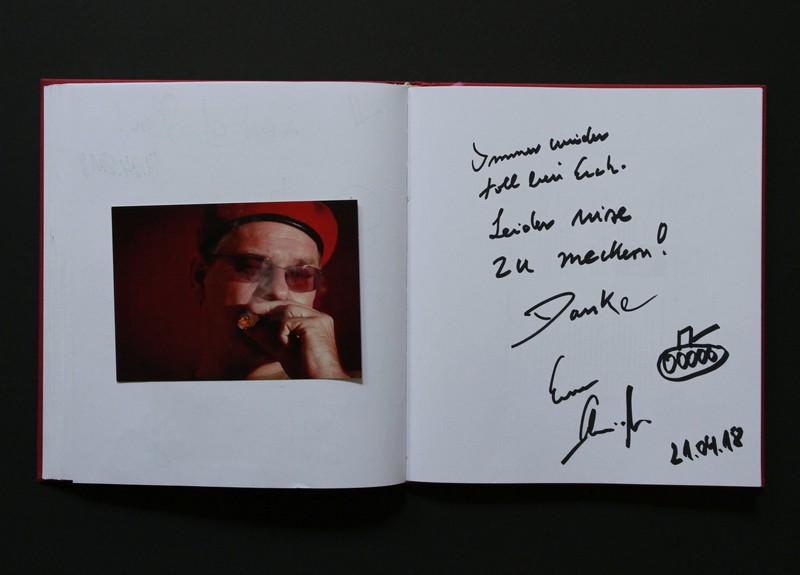 Immer wieder
toll bei Euch.
Leider nixe
zu meckern!
Danke
Euer
21.04.18